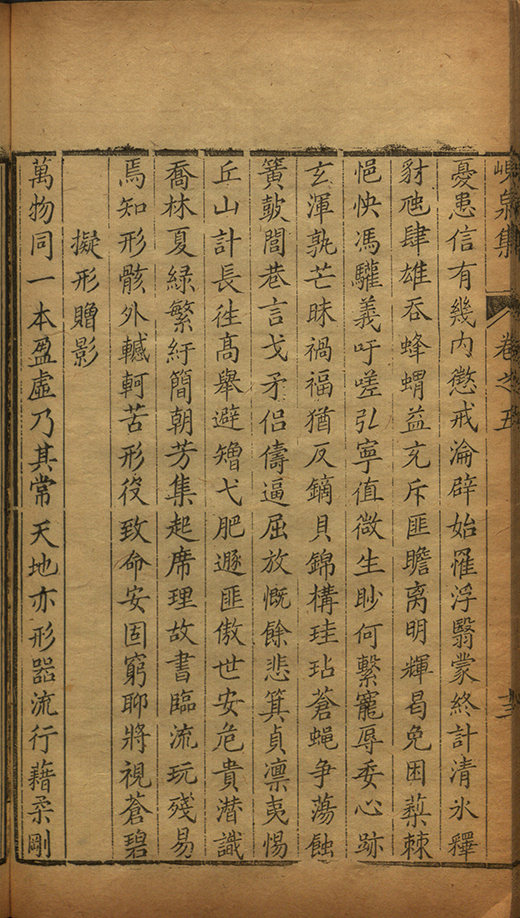 峴泉集 卷之五 十二
憂患信有幾内懲戒淪辟始罹浮翳蒙終計清氷釋
豺虺肆雄吞蜂蝟益充斥匪瞻离明輝曷免困蔾棘
悒怏馮驩義吁嗟引寧值微生眇何繫寵辱委心跡
玄渾孰芒昧禍福猶反鏑貝錦構珪玷蒼蝇争蕩蝕
簧皷閭巷言戈矛侶儔逼屈放慨餘悲箕貞凛夷惕
丘山計長徃髙舉避矰弋肥遯匪傲世安危貴潜識
喬林夏緑繁紆簡朝芳集起席理故書臨流玩殘易
焉知形骸外轗軻苦形役致命安固窮聊將視蒼碧
擬形贈影
萬物同一本盈虚乃其常天地亦形器流行藉柔剛